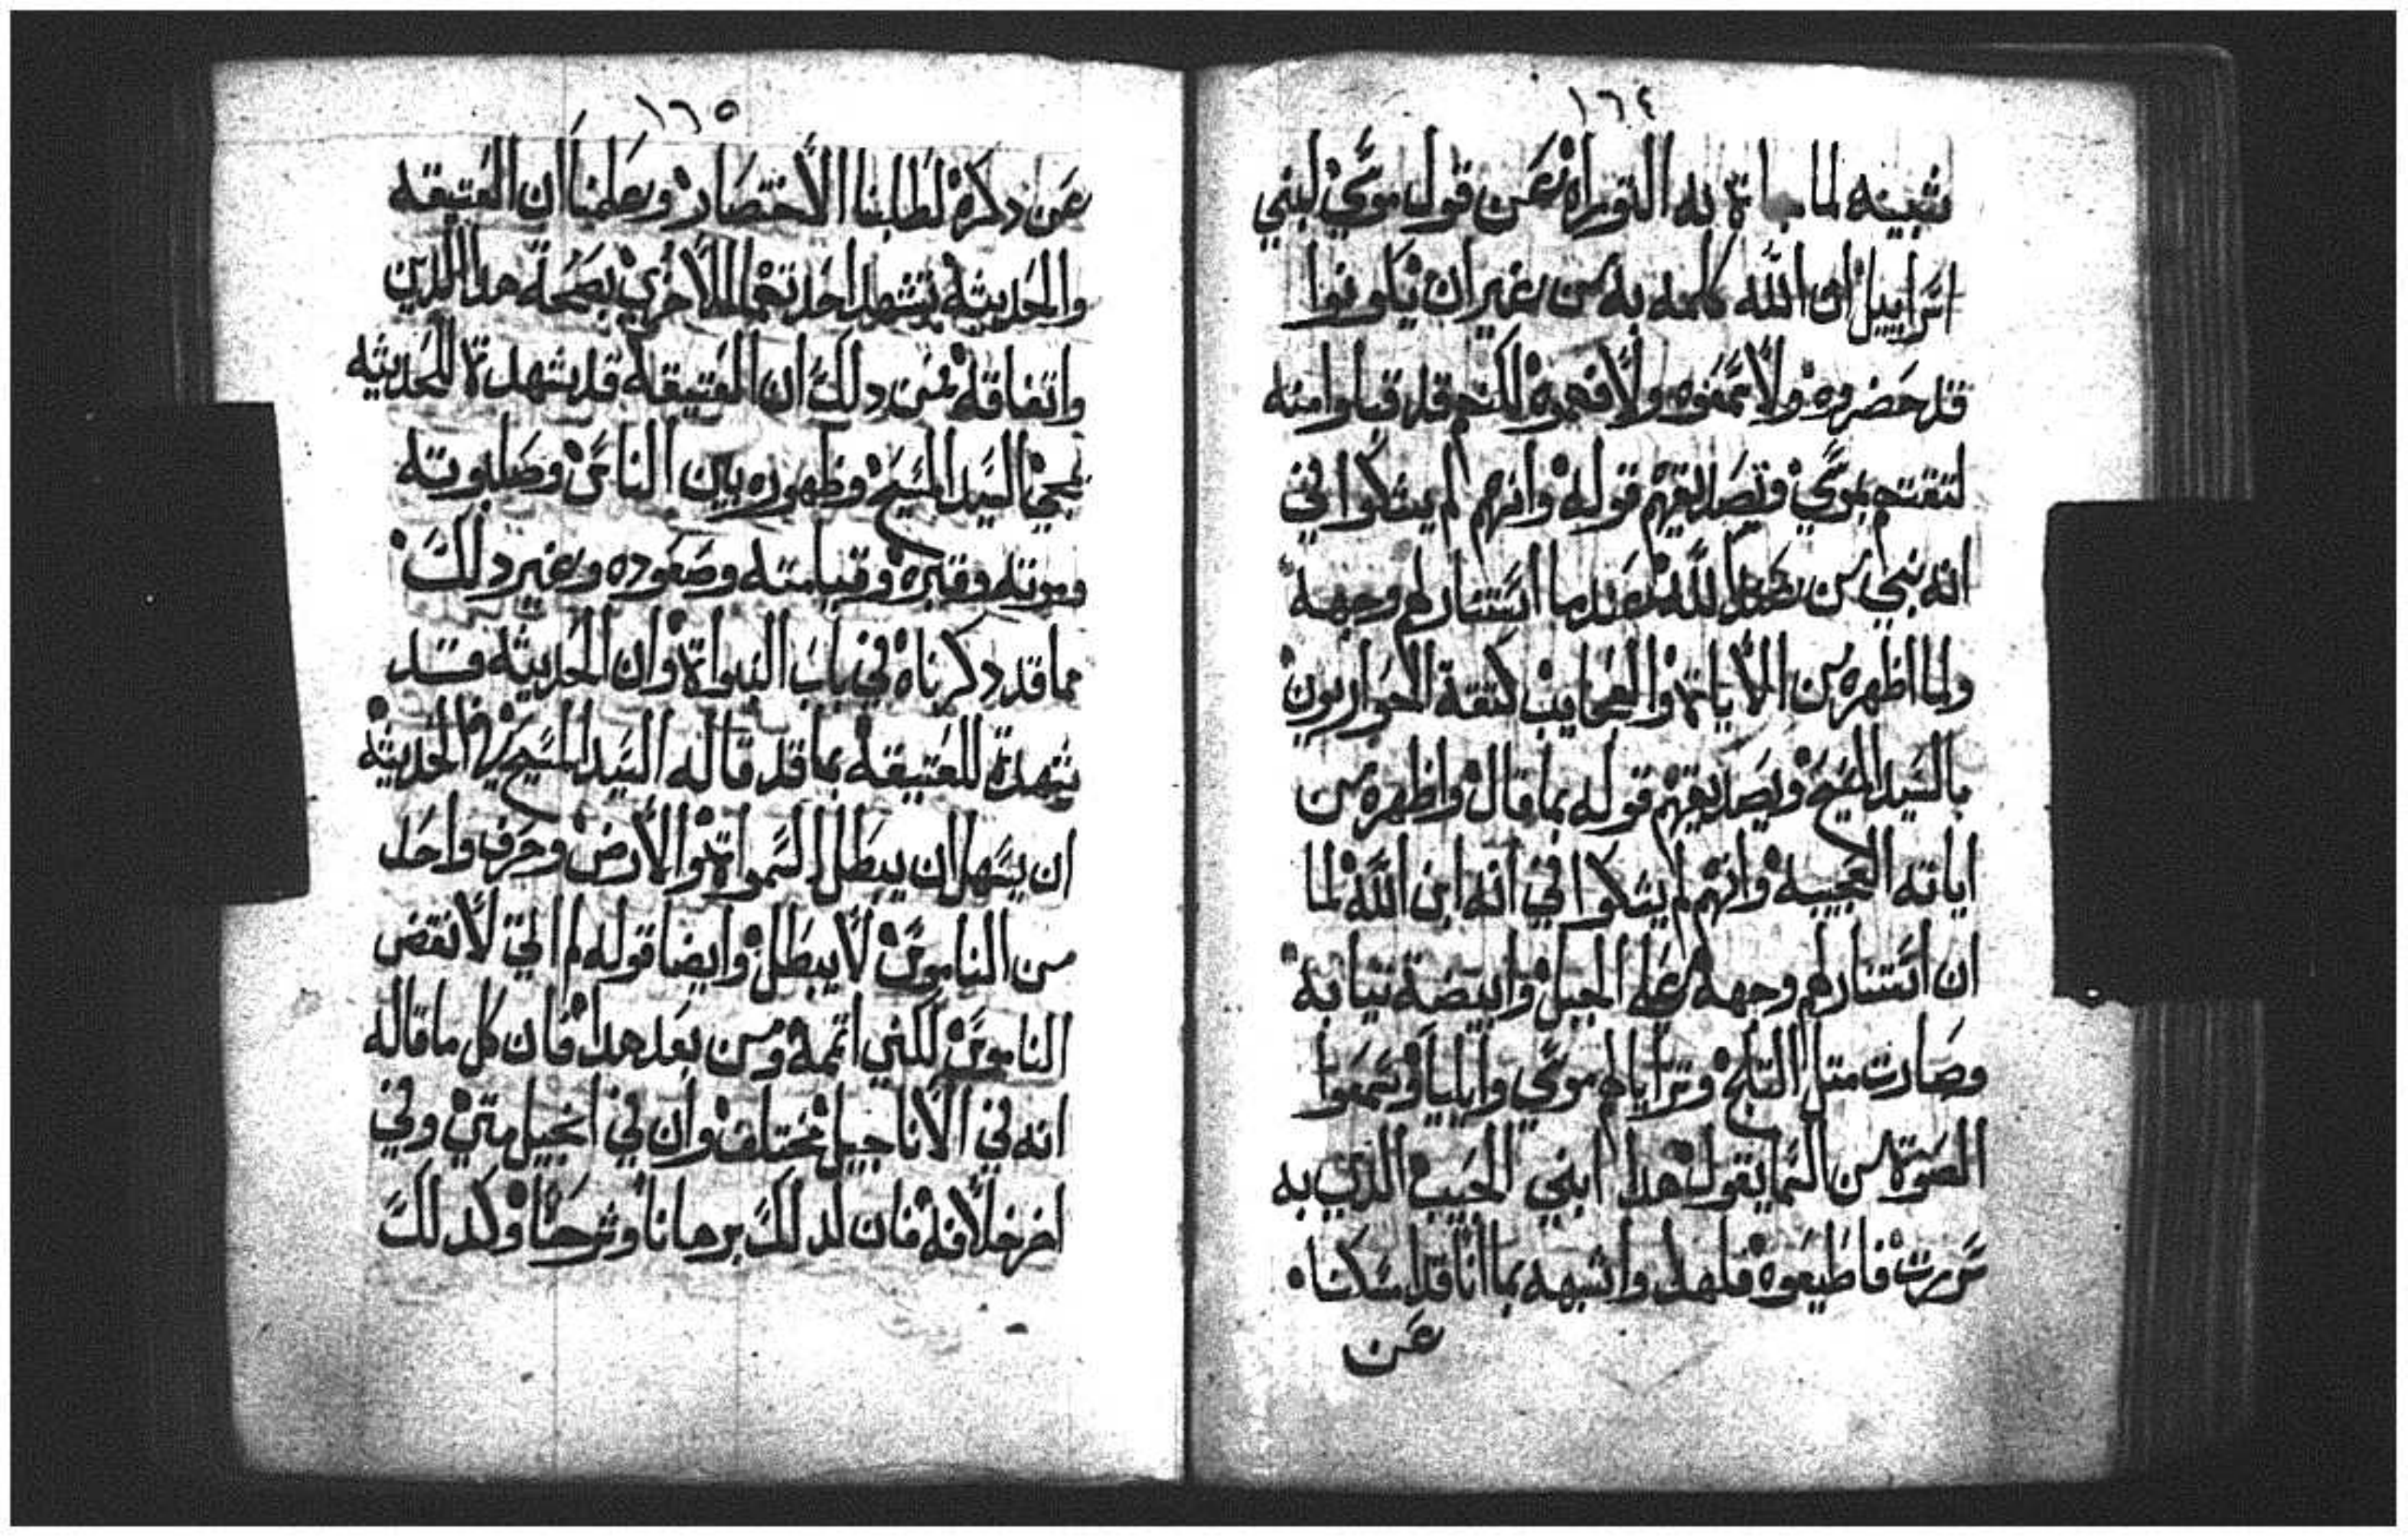 ١٦٤
شبيه لما جاة به التوراه عن قول موسي لبني
اسراييل ان الله كلمه به من غير ان يكونوا
قد حضروه ولا سمعوه ولا فهموه لكنهم قد قبلوا منه
لتقتهم بموسي وتصديقهم قوله وانهم لم يشكوا في
انه نبي من عند الله عندما استنار لهم وجهه
ولما اظهره من الايات والعجايب كتقة الحواريون
بالسيد المسيح وتصديقهم قوله بما قال واظهره من
اياته العجيبه وانهم لم يشكوا في انه ابن الله لما
ان استنار لهم وجهه علي الجبل وابيضة تيابه
وصارت متل التلج وترايا لهم موسي وايليا وسمعوا
الصوت من السما يقول هدا ابني الحبيب الذي به
سررت فاطيعوه فلهدا واشبهه بما اننا قد سكتنا
عن
١٦٥
عن دكره لطلبنا الاختصار وعلمنا ان العتيقه
والحديثه تشهد احدتهما للاخري بصحة هدا الدين
واتفاقه فمن دلك ان العتيقه قد شهدة للحديثه
بمجي السيد المسيح وظهوره بين الناس وصلبوته
وموته وقبره وقيامته وصعوده وغير دلك
مما قد دكرناه في باب النبواة وان الحديثه قد
شهدة للعتيقه بما قد قاله السيد المسيح في الحديثه
ان يسهل ان يبطل السمواة والارض وحرف واحد
من الناموس لا يبطل وايضا قوله لم اتي لانقض
الناموس لكني اتممه ومن بعد هدا فان كل ما قاله
انه في الاناجيل مختلف وان في انجيل متي وفي
اخر خلافه فان لدلك برهانا وشرحا وكدلك